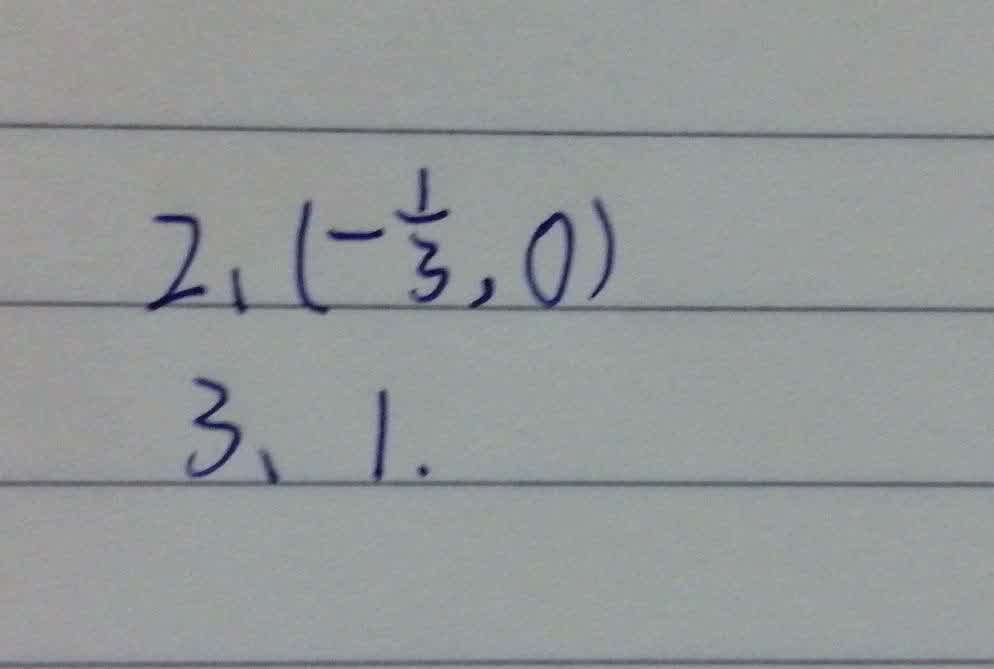 2、(-1/3, 0)
3、1.